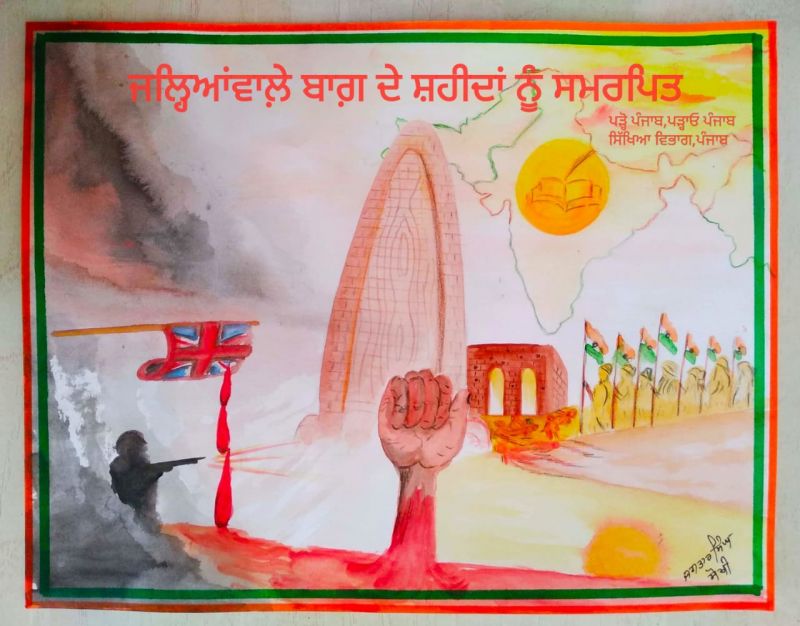 ਜਲ੍ਹਿਆਂਵਾਲ਼ੇ ਬਾਗ਼ ਦੇ ਸ਼ਹੀਦਾਂ ਨੂੰ ਸਮਰਪਿਤ
ਪੜ੍ਹੋ ਪੰਜਾਬ,ਪੜ੍ਹਾਓ ਪੰਜਾਬ
ਸਿੱਖਿਆ ਵਿਭਾਗ,ਪੰਜਾਬ
ਜਗਤਾਰ ਸਿੰਘ
ਸੋਖੀ